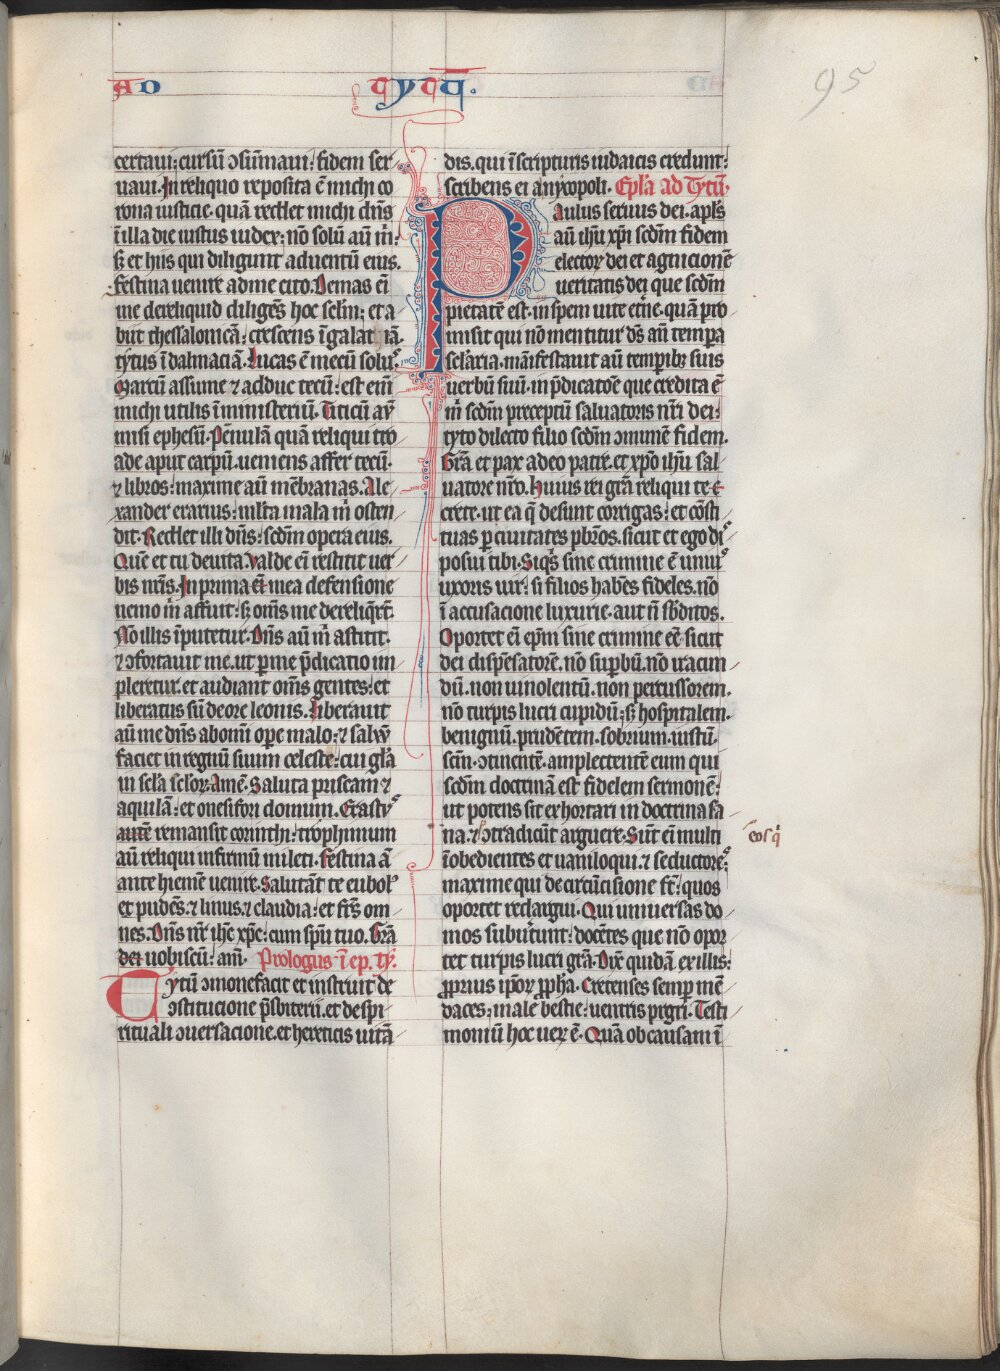 AD
95
certaui; cursū ↄsūmaui; fidem ser
uaui. In reliquo reposita ē michi co
rona iusticie. quā reddet michi dn̄s
ī illa die iustus iudex; nō solū aū m̄;
s; et hiis qui diligunt aduentū eius.
festina uenire ad me cito. Demas eī
me dereliquid diligēs hoc sclm̄; et a
biit thessalonicā; crescens ī galathiā
tytus ī dalmaciā. Lucas ē mecū solus
Marcū assume ⁊ adduc tecū; est eī
michi utilis ī ministeriū. Titicū aū
misi ephesū. Pēnulā quā reliqui tro
ade aput carpū. ueniens affer tecū.
⁊ libros; maxime aū mēbranas. Ale
xander erarius; multa mala m̄ osten
dit. Reddet illi dn̄s; scdm̄ opera eius.
Quē et tu deuita. Valde eī restitit uer
bis nr̄is. In prima mea defensione
nemo m̄ affuit; s; om̄s me dereliq̄rt̄.
Nō illis īputetur. Dn̄s aū m̄ astitit.
⁊ ↄfortauit me. ut p me p̄dicatio im
pleretur. et audiant om̄s gentes; et
liberatus sū de ore leonis. Liberauit
aū me dn̄s ab om̄i ope malo; ⁊ saluū
faciet in regnū suum celeste; cui gl̄a
in scl̄a scl̄oꝝ. Amē. Saluta priscam ⁊
aquilā; et onesifori domum. Erastus
autē remansit corinthi; trophimum
aū reliqui infirmū mileti. Festina ā
ante hiemē uenire. Salutāt te eubolꝰ
et pudēs. ⁊ linus. ⁊ claudia; et fr̄s om
nes. Dn̄s nr̄ ih̄c xp̄c; cum sp̄u tuo. Grā
dei uobiscū; am̄. Prologus ī ep. ty.
Tytū ↄmonefacit et instruit de
ↄstitucione p̄sbiterii. et de spi
rituali ↄuersacione. et hereticis uitā
dis. qui ī scripturis iudaicis credunt;
scribens ei a nycopoli. Epl̄a ad Tytū.
Paulus seruus dei. apl̄s
aū ih̄u xp̄i scdm̄ fidem
electoꝝ dei et agnicionē
ueritatis dei que scdm̄
pietatē est. in spem uite et̄ne. quā pro
misit qui nō mentitur d̄s an̄ tempa
scl̄aria. mānifestauit aū tempibꝫ suis
uerbū suū. in p̄dicatōe que credita ē
m̄ scdm̄ preceptū saluatoris nr̄i dei;
tyto dilecto filio scdm̄ ↄmunē fidem.
Grā et pax a deo patre. et xp̄o ih̄u sal
uatore nr̄o. Huius rei gr̄a reliqui te c
crete. ut ea q̄ desunt corrigas; et cōsti
tuas p ciuitates pb̄ros. sicut et ego dis
posui tibi. Siqs sine crimine ē unius
uxoris uir; si filios habēs fideles. nō
ī accusacione luxurie. aut n̄ sb̄ditos.
Oportet eī ep̄m sine crimine eē. sicut
dei dispēsatorē. nō supbū. nō iracun
dū. non uinolentū. non percussorem.
nō turpis lucri cupidū; s; hospitalem.
benignū. prudētem. sobrium. iustū.
scm̄. ↄtinentē. amplectentē eum qui
scdm̄ doctrinā est fidelem sermonē;
ut potens sit exhortari in doctrina sa
na. ⁊ ↄtradicūt arguere. Sūt eī multi
eos q̄
īobedientes et uaniloqui. ⁊ seductores;
maxime qui de circūcisione st̄; quos
oportet redargui. Qui uniuersas do
mos subūtunt; docētes que nō opor
tet turpis lucri gr̄a. Dix̄ quidā ex illis;
ꝓprius ipoꝝ ꝓpha. Cretenses semp mē
daces; male bestie; uentris pigri. Testi
moniū hoc ueꝝ ē. Quā ob causam ī